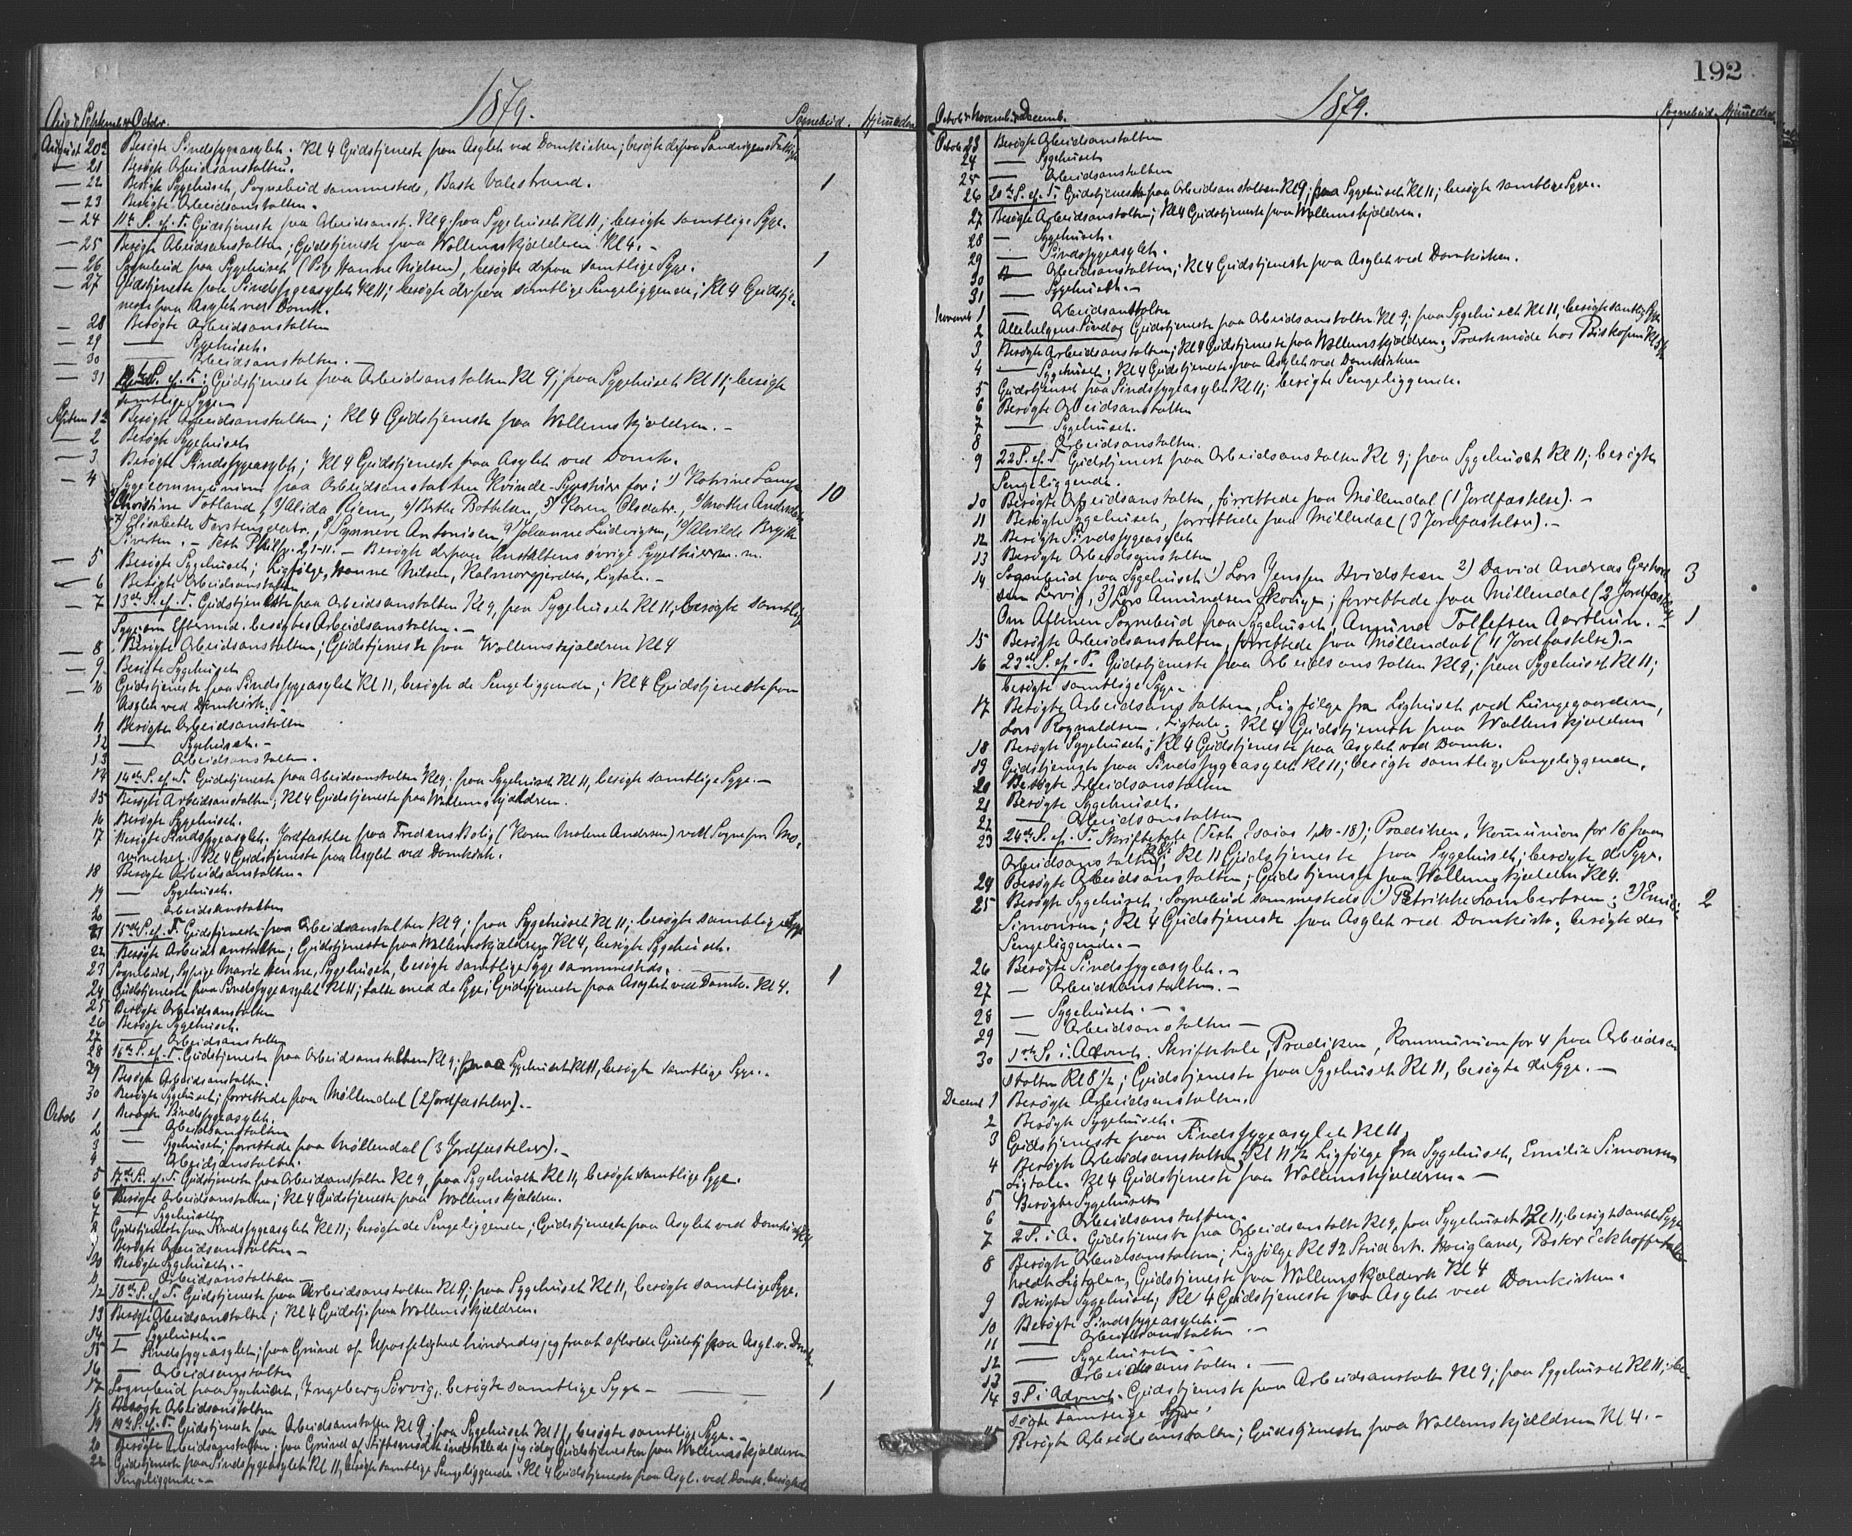 1879.
Aug & September & Octobr. Sognebud. Hjemmedøbt
August 20de Besøgte Sindssygeasylet. Kl 4 Gudstjeneste paa Asylet ved Domkirken; besøgte derpaa Sandvigens
— 21 Besøgte Arbeidsanstalten.
— 22 Besøgte Sygehuset, Sognebud sammesteds, Valestrand. 1
— 23 Besøgte Arbeidsanstalten.
— 24 11te S. ef. T. Gudstjeneste paa Arbeidsanst. Kl 9, paa Sygehuset Kl 11, besøgte samtlige Syge.
— 25 Besøgte Arbeidsanstalten; Gudstjeneste paa Wollemskjælderen Kl 4. —
— 26 Sognebud paa Sygehuset (Pige Hanne Nielsen), besøgte derpaa samtlige Syge. 1
— 27 Gudstjeneste paa Sindssygeasylet Kl 11; besøgte derpaa samtlige Sengeliggende; Kl 4 Gudstje-
neste paa Asylet ved Domk.
— 28 Besøgte Arbeidsanstalten
— 29 — Sygehuset.
— 30 — Arbeidsanstalten. —
— 31 12te S. ef. T.: Gudstjeneste paa Arbeidsanstalten Kl 9; paa Sygehuset Kl 11; besøgte
samtlige Syge
Septem 1te Besøgte Arbeidsanstalten; Kl 4 Gudstjeneste paa Wollemskjælderen. —
— 2 Besøgte Sygehuset
— 3 Besøgte Sindssygeasylet; Kl 4 Gudstjeneste paa Asylet ved Domk.
— 4 Sygecommunion paa Arbeidsanstalten Kvinde-Sygestue for: 1) Katrine 10
2) Christine Totland, 3) Alida 4) Berthe 5) Karen Olsdatr.,
7) Elisabeth Torstensdatr., 8) Synneve Antonisen, 9) Johanne Ludvigsen, 10) Alvilde
Siverten. — Text Phil. 2, 1-11. — Besøgte derpaa Anstaltens øvrige Sygestuer m. m.
— 5 Besøgte Sygehuset; Ligfølge, Hanne Nilsen, Ligtale. —
— 6 Besøgte Arbeidsanstalten
— 7 13de S. ef. T. Gudstjeneste paa Arbeidsanstalten Kl 9, paa Sygehuset Kl 11, besøgte samtlige
Syge; om Eftermid. besøgtes Arbeidsanstalten. —
— 8 Besøgte Arbeidsanstalten; Gudstjeneste paa Wollemskjælderen Kl 4
— 9 Besøgte Sygehuset
— 10 Gudstjeneste paa Sindssygeasylet Kl 11, besøgte de Sengeliggende; Kl 4 Gudstjeneste paa
Asylet ved Domkirk. —
11 Besøgte Arbeidsanstalten
12 — Sygehuset. —
13 — Arbeidsanstalten.
14 14de S. ef. T. Gudstjeneste paa Arbeidsanstalten Kl 9, paa Sygehuset Kl 11, besøgte samtlige Syge. —
15 Besøgte Arbeidsanstalten; Kl 4 Gudstjeneste paa Wollemskjælderen.
16 Besøgte Sygehuset.
17 Besøgte Sindssygeasylet. Jordfæstelse paa Fredensbolig (Karen Malene Andersen) ved Sognepr.
Kl 4 Gudstjeneste paa Asylet ved Domkirk.
18 Besøgte Arbeidsanstalten.
19 — Sygehuset.
20 — Arbeidsanstalten
21 15de S. ef. T. Gudstjeneste paa Arbeidsanstalten Kl 9; paa Sygehuset Kl 11; besøgte samtlige Syge
22 Besøgte Arbeidsanstalten; Gudstjeneste paa Wollemskjælderen Kl 4, besøgte Sygehuset.
23 Sognebud, Marie Sygehuset, besøgte samtlige Syge sammesteds. — 1
24 Gudstjeneste paa Sindssygeasylet Kl 11; talte med de Syge; Gudstjeneste paa Asylet ved Domk. Kl 4.
25 Besøgte Arbeidsanstalten
26 Besøgte Sygehuset.
27 — Arbeidsanstalten
28 16de S. ef. T. Gudstjeneste paa Arbeidsanstalten Kl 9; paa Sygehuset Kl 11, besøgte samtlige Syge. —
29 Besøgte Arbeidsanstalten.
30 Besøgte Sygehuset; forrettede paa Møllendal (2 Jordfæstelser). —
Octob 1 Besøgte Sindssygeasylet.
2 — Arbeidsanstalten
3 — Sygehuset; forrettede paa Møllendal (3 Jordfæstelser). —
4 — Arbeidsanstalten.
5 17de S. ef. T. Gudstjeneste paa Arbeidsanstalten Kl 9, paa Sygehuset Kl 11, besøgte samtlige Syge.
6 Besøgte Arbeidsanstalten; Kl 4 Gudstjeneste paa Wollemskjælderen.
7 — Sygehuset
8 Gudstjeneste paa Sindssygeasylet Kl 11; besøgte de Sengeliggende; Gudstjeneste paa Asylet ved Domkirk Kl 4
9 Besøgte Arbeidsanstalten —
10 Besøgte Sygehuset. —
11 — Arbeidsanstalten —
12 18de S. ef. T. Gudstjeneste paa Arbeidsanstalten Kl 9; paa Sygehuset Kl 11, besøgte samtlige Syge.
13 Besøgte Arbeidsanstalten; Kl 4 Gudstj. paa Wollemskjælderen.
14 — Sygehuset. —
15 — Sindssygeasylet; paa Grund af Upasselighed hindredes jeg fra at afholde Gudstj. paa Asyl. v. Domk.
16 — Arbeidsanstalten
17 Sognebud paa Sygehuset, Ingeborg Sørvig, besøgte samtlige Syge — 1
18 Besøgte Arbeidsanstalten
19 19de S. ef. T. Gudstjeneste paa Arbeidsanstalten Kl 9; paa Sygehuset Kl 11, besøgte samtlige Syge. —
20 Besøgte Arbeidsanstalten; paa Grund af indstillede jeg idag Gudstjenesten paa Wollemskjælderen
22 Gudstjeneste paa Sindssygeasylet Kl 11, besøgte samtlige Sengeliggende. Kl 4 Gudstjeneste paa Asyl. ved Domk. besøgte de
Sengeliggende. —
192
1879.
Octob. & Novemb. & Decemb. Sognebud. Hjemmedøbt
Octob 23 Besøgte Arbeidsanstalten
24 — Sygehuset
25 — Arbeidsanstalten
26 20de S. ef. T. Gudstjeneste paa Arbeidsanstalten Kl 9; paa Sygehuset Kl 11; besøgte samtlige Syge.
27 Besøgte Arbeidsanstalten; Kl 4 Gudstjeneste paa Wollemskjælderen.
28 — Sygehuset.
29 — Sindssygeasylet.
30 — Arbeidsanstalten; Kl 4 Gudstjeneste paa Asylet ved Domkirken.
31 — Sygehuset. —
Novemb 1 — Arbeidsanstalten
2 Allehelgens Søndag Gudstjeneste paa Arbeidsanstalten Kl 9; paa Sygehuset Kl 11, besøgte samtlig Syge
3 Besøgte Arbeidsanstalten; Kl 4 Gudstjeneste paa Wollemskjælderen; Præstemøde hos Biskopen
4 — Sygehuset; Kl 4 Gudstjeneste paa Asylet ved Domkirken
5 Gudstjeneste paa Sindssygeasylet Kl 11; besøgte Sengeliggende.
6 Besøgte Arbeidsanstalten
7 — Sygehuset.
8 — Arbeidsanstalten.
9 22 S. ef. T. Gudstjeneste paa Arbeidsanstalten Kl 9; paa Sygehuset Kl 11; besøgte
Sengeliggende.
10 Besøgte Arbeidsanstalten, forrettede paa Møllendal (1 Jordfæstelse). —
11 Besøgte Sygehuset, forrettede paa Møllendal (3 Jordfæstelser). —
12 Besøgte Sindssygeasylet
13 Besøgte Arbeidsanstalten
14 Sognebud paa Sygehuset 1) Lars Jenssen Hvidsteen 2) David Andreas 3
3) Lars Amundsen forrettede paa Møllendal (2 Jordfæstelser)
Om Aftenen Sognebud paa Sygehuset, Amund Tollefsen Aarthun. — 1
15 Besøgte Arbeidsanstalten, forrettede paa Møllendal (1 Jordfæstelse). —
16 23de S. ef. T. Gudstjeneste paa Arbeidsanstalten Kl 9; paa Sygehuset Kl 11;
besøgte samtlige Syge.
17 Besøgte Arbeidsanstalten, Ligfølge fra Lighuset ved Lungegaarden,
Lars Rognaldsen. Ligtale. Kl 4 Gudstjeneste paa Wollemskjælderen
18 Besøgte Sygehuset; Kl 4 Gudstjeneste paa Asylet ved Domk.
19 Gudstjeneste paa Sindssygeasylet Kl 11; besøgte samtlige Sengeliggende.
20 Besøgte Arbeidsanstalten
21 Besøgte Sygehuset.
22 — Arbeidsanstalten
23 24de S. ef. T. Skriftetale (Text Esaias 1, 10-18); Prædiken, Kommunion for 16 paa
Arbeidsanstalten; Kl 11 Gudstjeneste paa Sygehuset; besøgte de Syge.
24 Besøgte Arbeidsanstalten; Gudstjeneste paa Wollemskjælderen Kl 4.
25 Besøgte Sygehuset. Sognebud sammesteds 1) Petrikke Lambertsen; 2) Emilie 2
Simonsen; Kl 4 Gudstjeneste paa Asylet ved Domkirk.; besøgte des
Sengeliggende. —
26 Besøgte Sindssygeasylet. —
27 — Arbeidsanstalten. —
28 — Sygehuset. —
29 — Arbeidsanstalten —
30 1ste S. i Advent. Skriftetale, Prædiken, Kommunion for 4 paa Arbeidsan
stalten Kl 8 1/2; Gudstjeneste paa Sygehuset Kl 11, besøgte de Syge. —
Decemb 1 Besøgte Arbeidsanstalten.
2 Besøgte Sygehuset.
3 Gudstjeneste paa Sindssygeasylet Kl 11
4 Besøgte Arbeidsanstalten; Kl 11 1/2 Ligfølge fra Sygehuset, Emilie Simonsen
Ligtale. Kl 4 Gudstjeneste paa Wollemskjælderen. —
5 Besøgte Sygehuset
6 — Arbeidsanstalten.
7 2 S. i A. Gudstjeneste paa Arbeidsanstalten Kl 9, paa Sygehuset Kl 11; besøgte samtl. Syge
8 Besøgte Arbeidsanstalten; Ligfølge Kl 12 Student. Haugland, Pastor Eckhoff
holdt Ligtalen, Gudstjeneste paa Wollemskjælderen Kl 4
9 Besøgte Sygehuset; Kl 4 Gudstjeneste paa Asylet ved Domkirken.
10 Besøgte Sindssygeasylet. —
11 — Arbeidsanstalten —
12 — Sygehuset —
13 — Arbeidsanstalten. —
14 3 S. i Advent. Gudstjeneste paa Arbeidsanstalten Kl 9; paa Sygehuset Kl 11; be-
søgte samtlige Syge.
15 Besøgte Arbeidsanstalten; Gudstjeneste paa Wollemskjælderen Kl 4. —